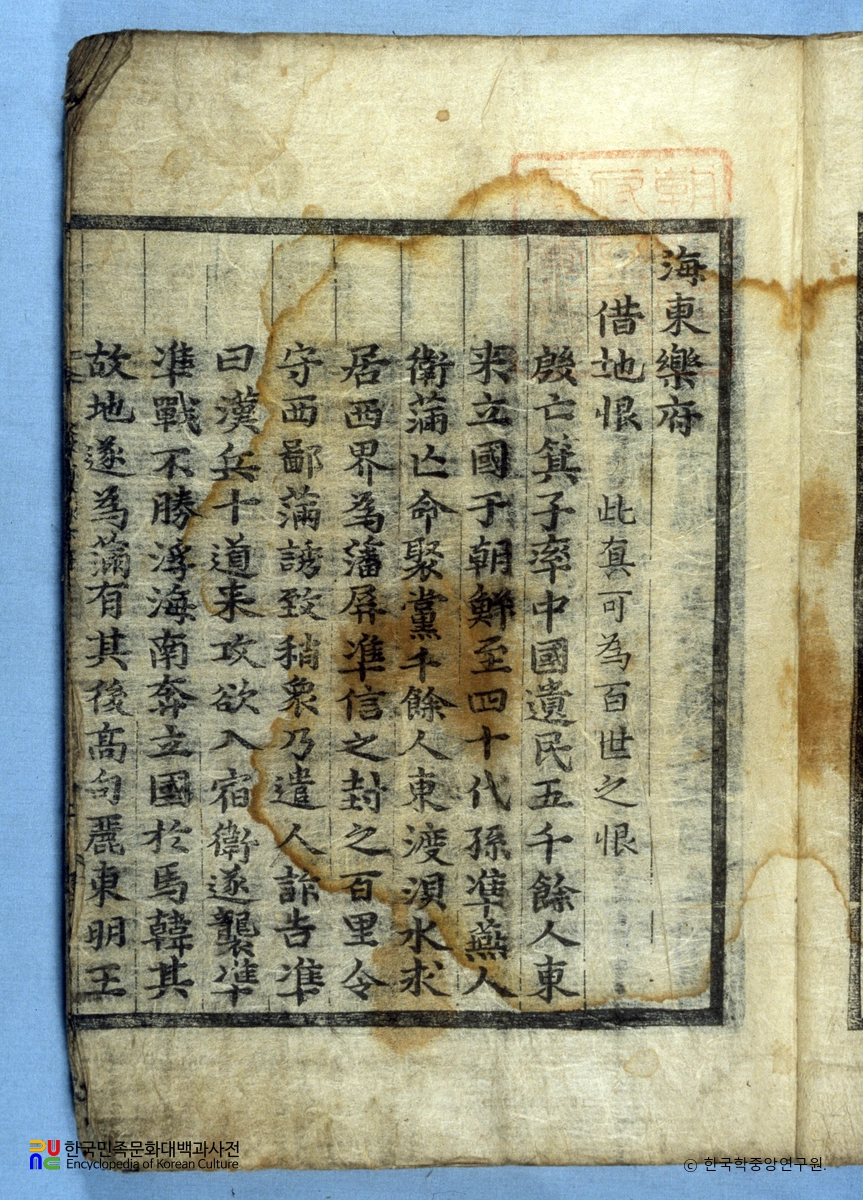 海東樂府
借地恨 此真可為百世之恨
殷亡箕子率中國遺民五千餘人東
来立國于朝鮮至四十代孫準燕人
衛蒲亡命聚黨千餘人東渡浿水求
居西界為藩屏準信之封之百里令
守西鄙蒲誘致稍衆乃遣人詐告準
曰漢兵十道来攻欲入宿衛遂襲準
準戰不勝浮海南奔立國於馬韓其
故地遂為蒲有其後高句麗東明王
한국민족문화대백과사전
Encyclopedia of Korean Culture
ⓒ 한국학중앙연구원.